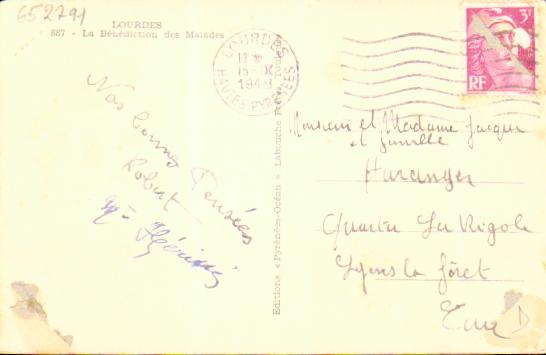 652791
LOURDES
887 - La Bénédiction des Malades
LOURDES
15 - IX
1948
HAUTES PYRENEES
3F
RF
Nos bonnes Pensées
Robert
Editions « Pyrénées-Océan » Labouche Frères, Toulouse
Monsieur et Madame Jacques
et famille
Huranger
Quartier La Rigole
Lyons la fôret
Eure